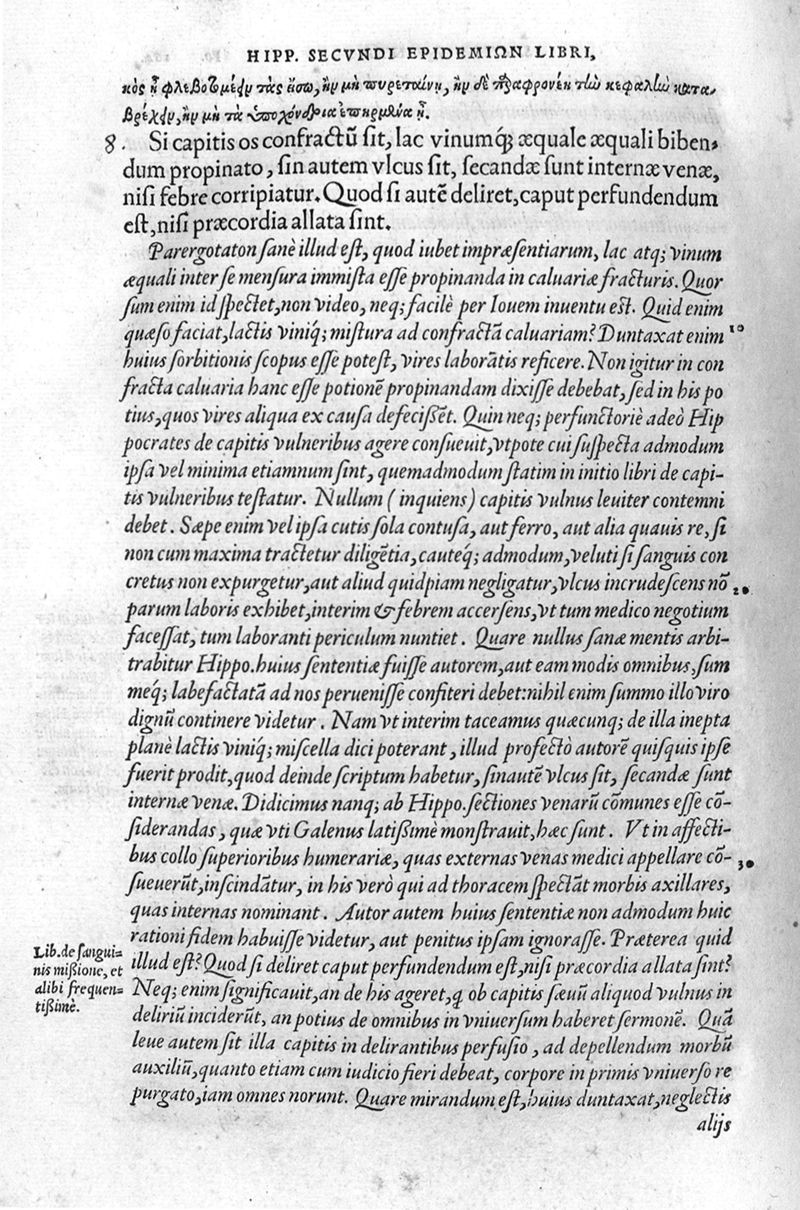 HIPP. SECVNDI EPIDEMIΩN LIBRI,
κὸς ᾖ φλεβοτομέειν τὰς ἔσω, ἢν μὴ πυρεταίνῃ, ἢν δὲ παραφρονέῃ τὴν κεφαλὴν κατα-
βρέχειν, ἢν μὴ τὰ ὑποχόνδρια ἐπηρμένα ᾖ.
8. Si capitis os confractū sit, lac vinumq; æquale æquali biben-
dum propinato, sin autem vlcus sit, secandæ sunt internæ venæ,
nisi febre corripiatur. Quod si autē deliret, caput perfundendum
est, nisi præcordia allata sint.
Parergotaton sanè illud est, quod iubet impræsentiarum, lac atq; vinum
æquali inter se mensura immista esse propinanda in caluariæ fracturis. Quor
sum enim id spectet, non video, neq; facilè per Iouem inuentu est. Quid enim
quæso faciat, lactis viniq́; mistura ad confractā caluariam? Duntaxat enim 10
huius sorbitionis scopus esse potest, vires laborātis reficere. Non igitur in con
fracta caluaria hanc esse potionē propinandam dixisse debebat, sed in his po
tius, quos vires aliqua ex causa defecissēt. Quin neq; perfunctoriè adeò Hip
pocrates de capitis vulneribus agere consueuit, vtpote cui suspecta admodum
ipsa vel minima etiamnum sint, quemadmodum statim in initio libri de capi-
tis vulneribus testatur. Nullum ( inquiens) capitis vulnus leuiter contemni
debet. Sæpe enim vel ipsa cutis sola contusa, aut ferro, aut alia quauis re, si
non cum maxima tractetur diligētia, cauteq́; admodum, veluti si sanguis con
cretus non expurgetur, aut aliud quidpiam negligatur, vlcus incrudescens nō 20
parum laboris exhibet, interim & febrem accersens, vt tum medico negotium
facessat, tum laboranti periculum nuntiet. Quare nullus sanæ mentis arbi-
trabitur Hippo. huius sententiæ fuisse autorem, aut eam modis omnibus, sum
meq́; labefactatā ad nos peruenisse confiteri debet: nihil enim summo illo viro
dignū continere videtur. Nam vt interim taceamus quæcunq; de illa inepta
planè lactis viniq́; miscella dici poterant, illud profectò autorē quisquis ipse
fuerit prodit, quod deinde scriptum habetur, sinautē vlcus sit, secandæ sunt
internæ venæ. Didicimus nanq; ab Hippo. sectiones venarū cōmunes esse cō-
siderandas, quæ vti Galenus latissimè monstrauit, hæc sunt. Vt in affecti-
bus collo superioribus humerariæ, quas externas venas medici appellare cō- 30
sueuerūt, inscindātur, in his verò qui ad thoracem spectāt morbis axillares,
quas internas nominant. Autor autem huius sententiæ non admodum huic
rationi fidem habuisse videtur, aut penitus ipsam ignorasse. Præterea quid
illud est? Quod si deliret caput perfundendum est, nisi præcordia allata sint?
Neq; enim significauit, an de his ageret, q ob capitis sæuū aliquod vulnus in
deliriū inciderūt, an potius de omnibus in vniuersum haberet sermonē. Quā
leue autem sit illa capitis in delirantibus perfusio, ad depellendum morbū
auxiliū, quanto etiam cum iudicio fieri debeat, corpore in primis vniuerso re
purgato, iam omnes norunt. Quare mirandum est, huius duntaxat, neglectis
alijs
Lib. de sangui-
nis missione, et
alibi frequen-
tissimè.